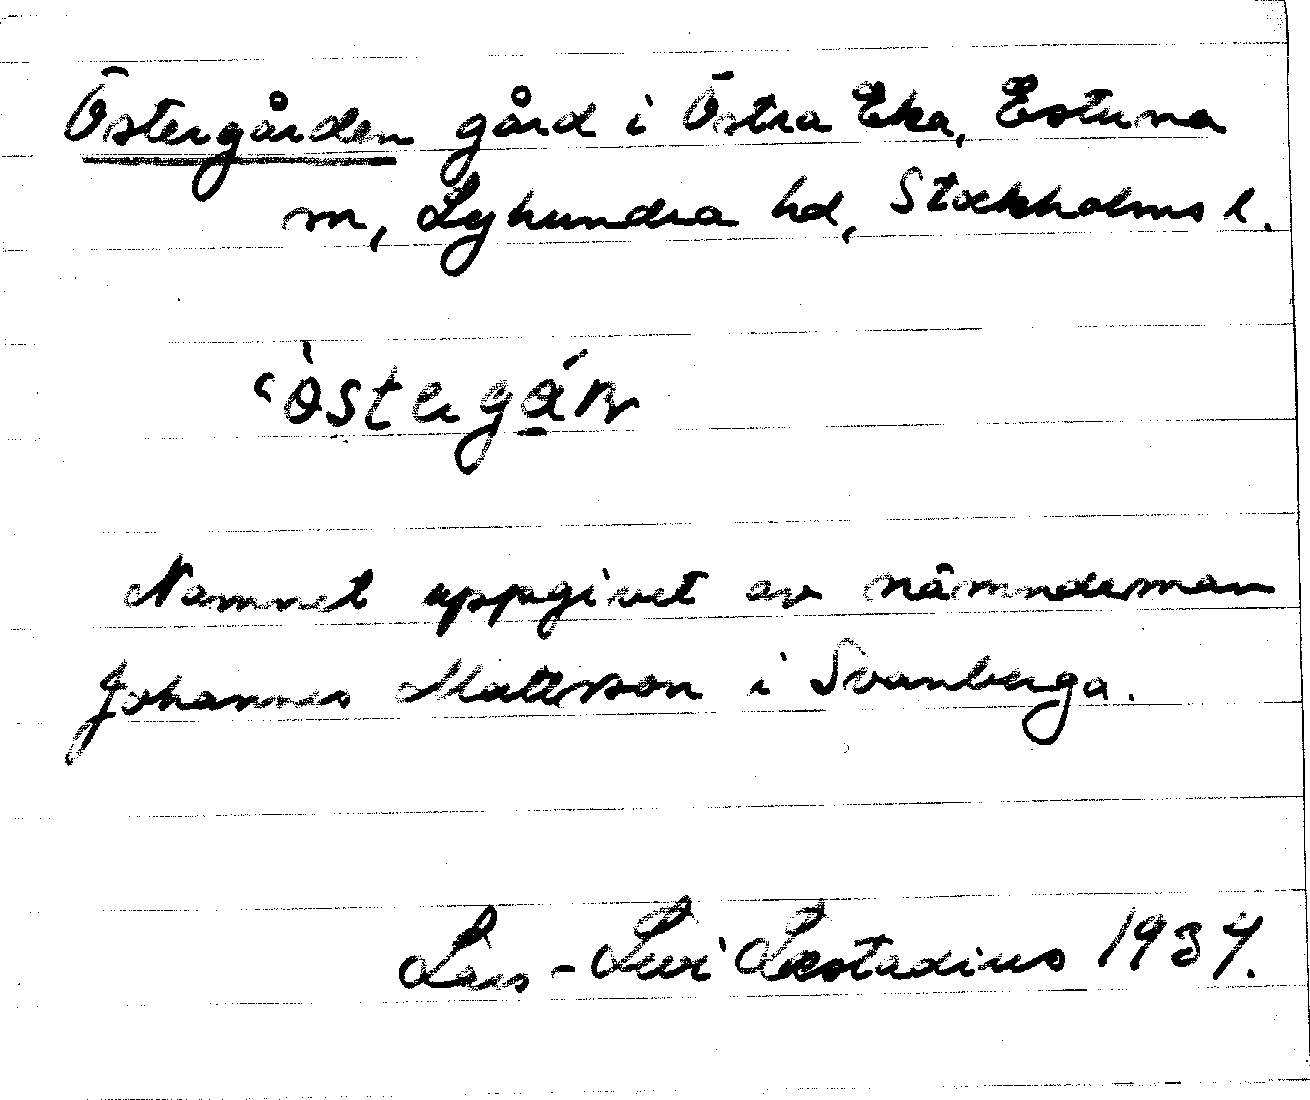 Östergården gård i Östra Eka, Estuna
sn, Lyhundra hd, Stockholms l.
Namnet uppgivet av nämndeman
Johannes Mattsson i Svanberga.
Lars-Levi Læstadius 1937.